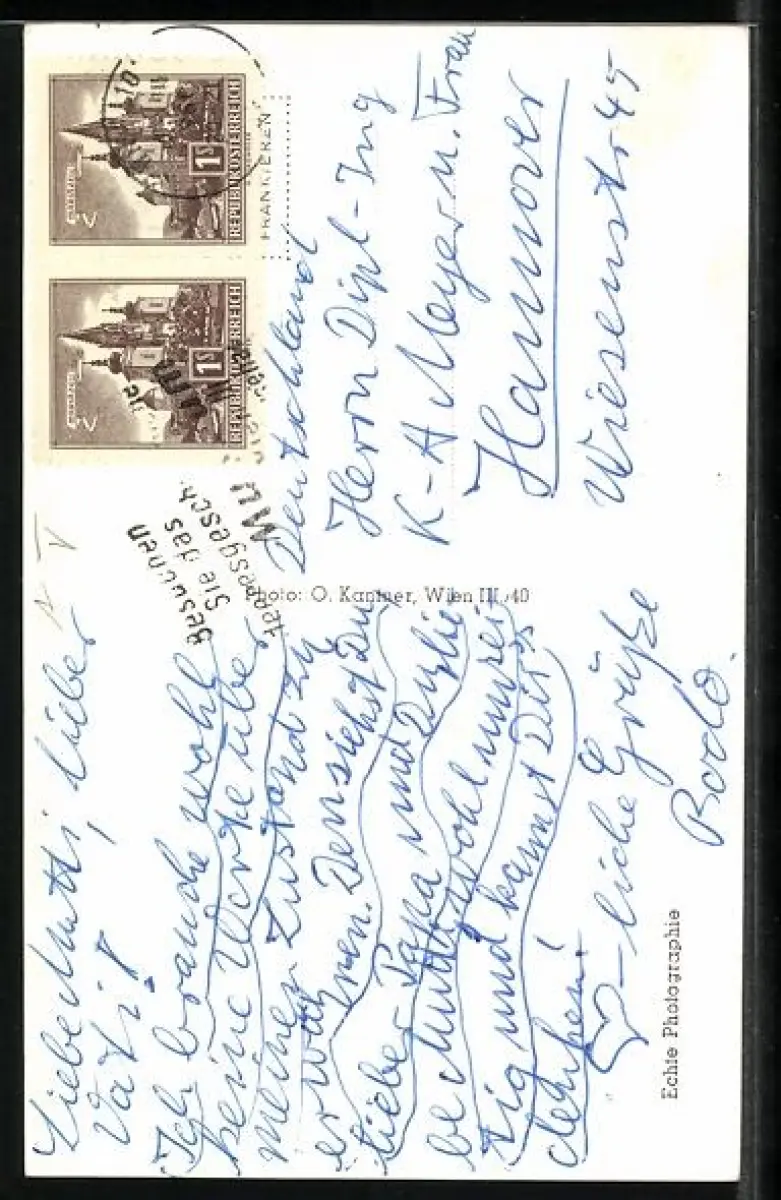 Liebe Mutti, lieber
Vati!
Ich brauche wohl
keine Worte über
meinen Zustand zu
Den siehst Du
lieber Papa und Du, lie
be Mutti wohl
zig und kannst Dir's
denken!
-liche Grüße
Bodo.
Photo: O. Kantner, Wien III/40
Echte Photographie
Besuchen
Sie das
REPUBLIK ÖSTERREICH
1S
REPUBLIK ÖSTERREICH
1S
FRANKIEREN
Deutschland
Herrn Dipl-Ing
K-A Meyer u. Frau
Hannover
Wiesenstr 45